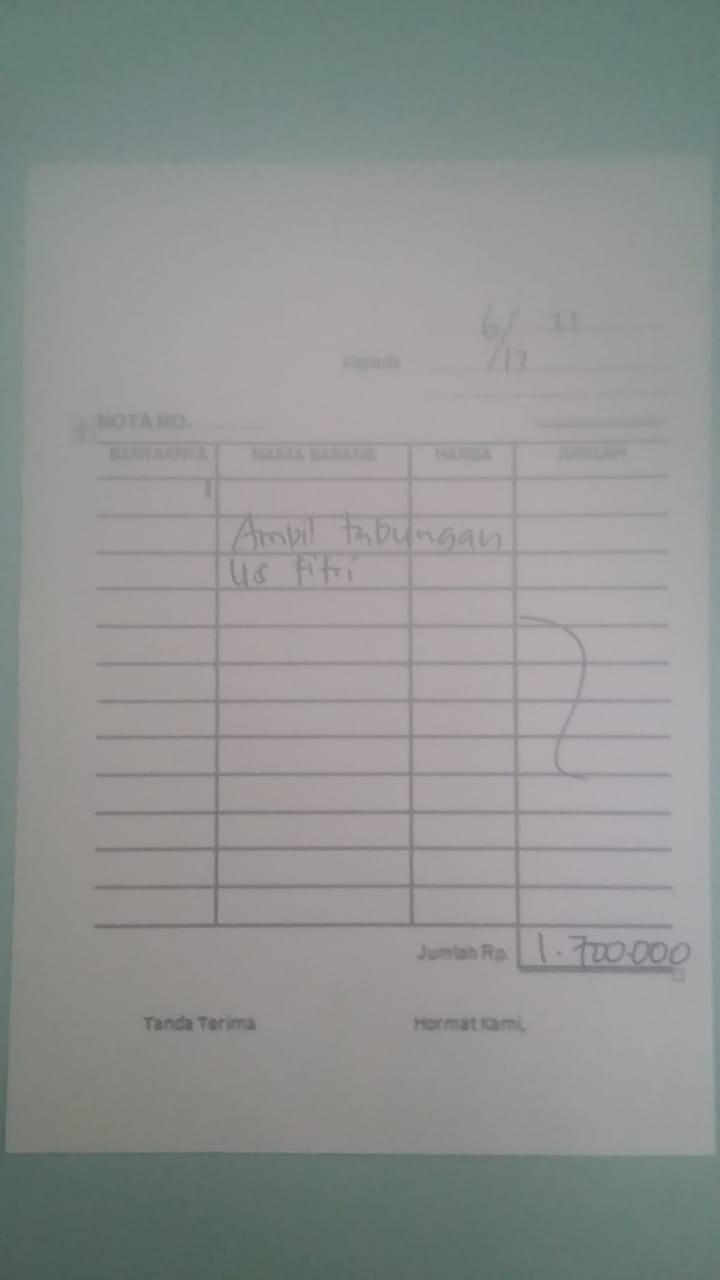 6/12 21
Kepada
NOTA NO.
BANYAKNYA NAMA BARANG HARGA JUMLAH
Ambil tabungan
Us Fitri
Jumlah Rp. 1.700.000
Tanda Terima Hormat Kami,